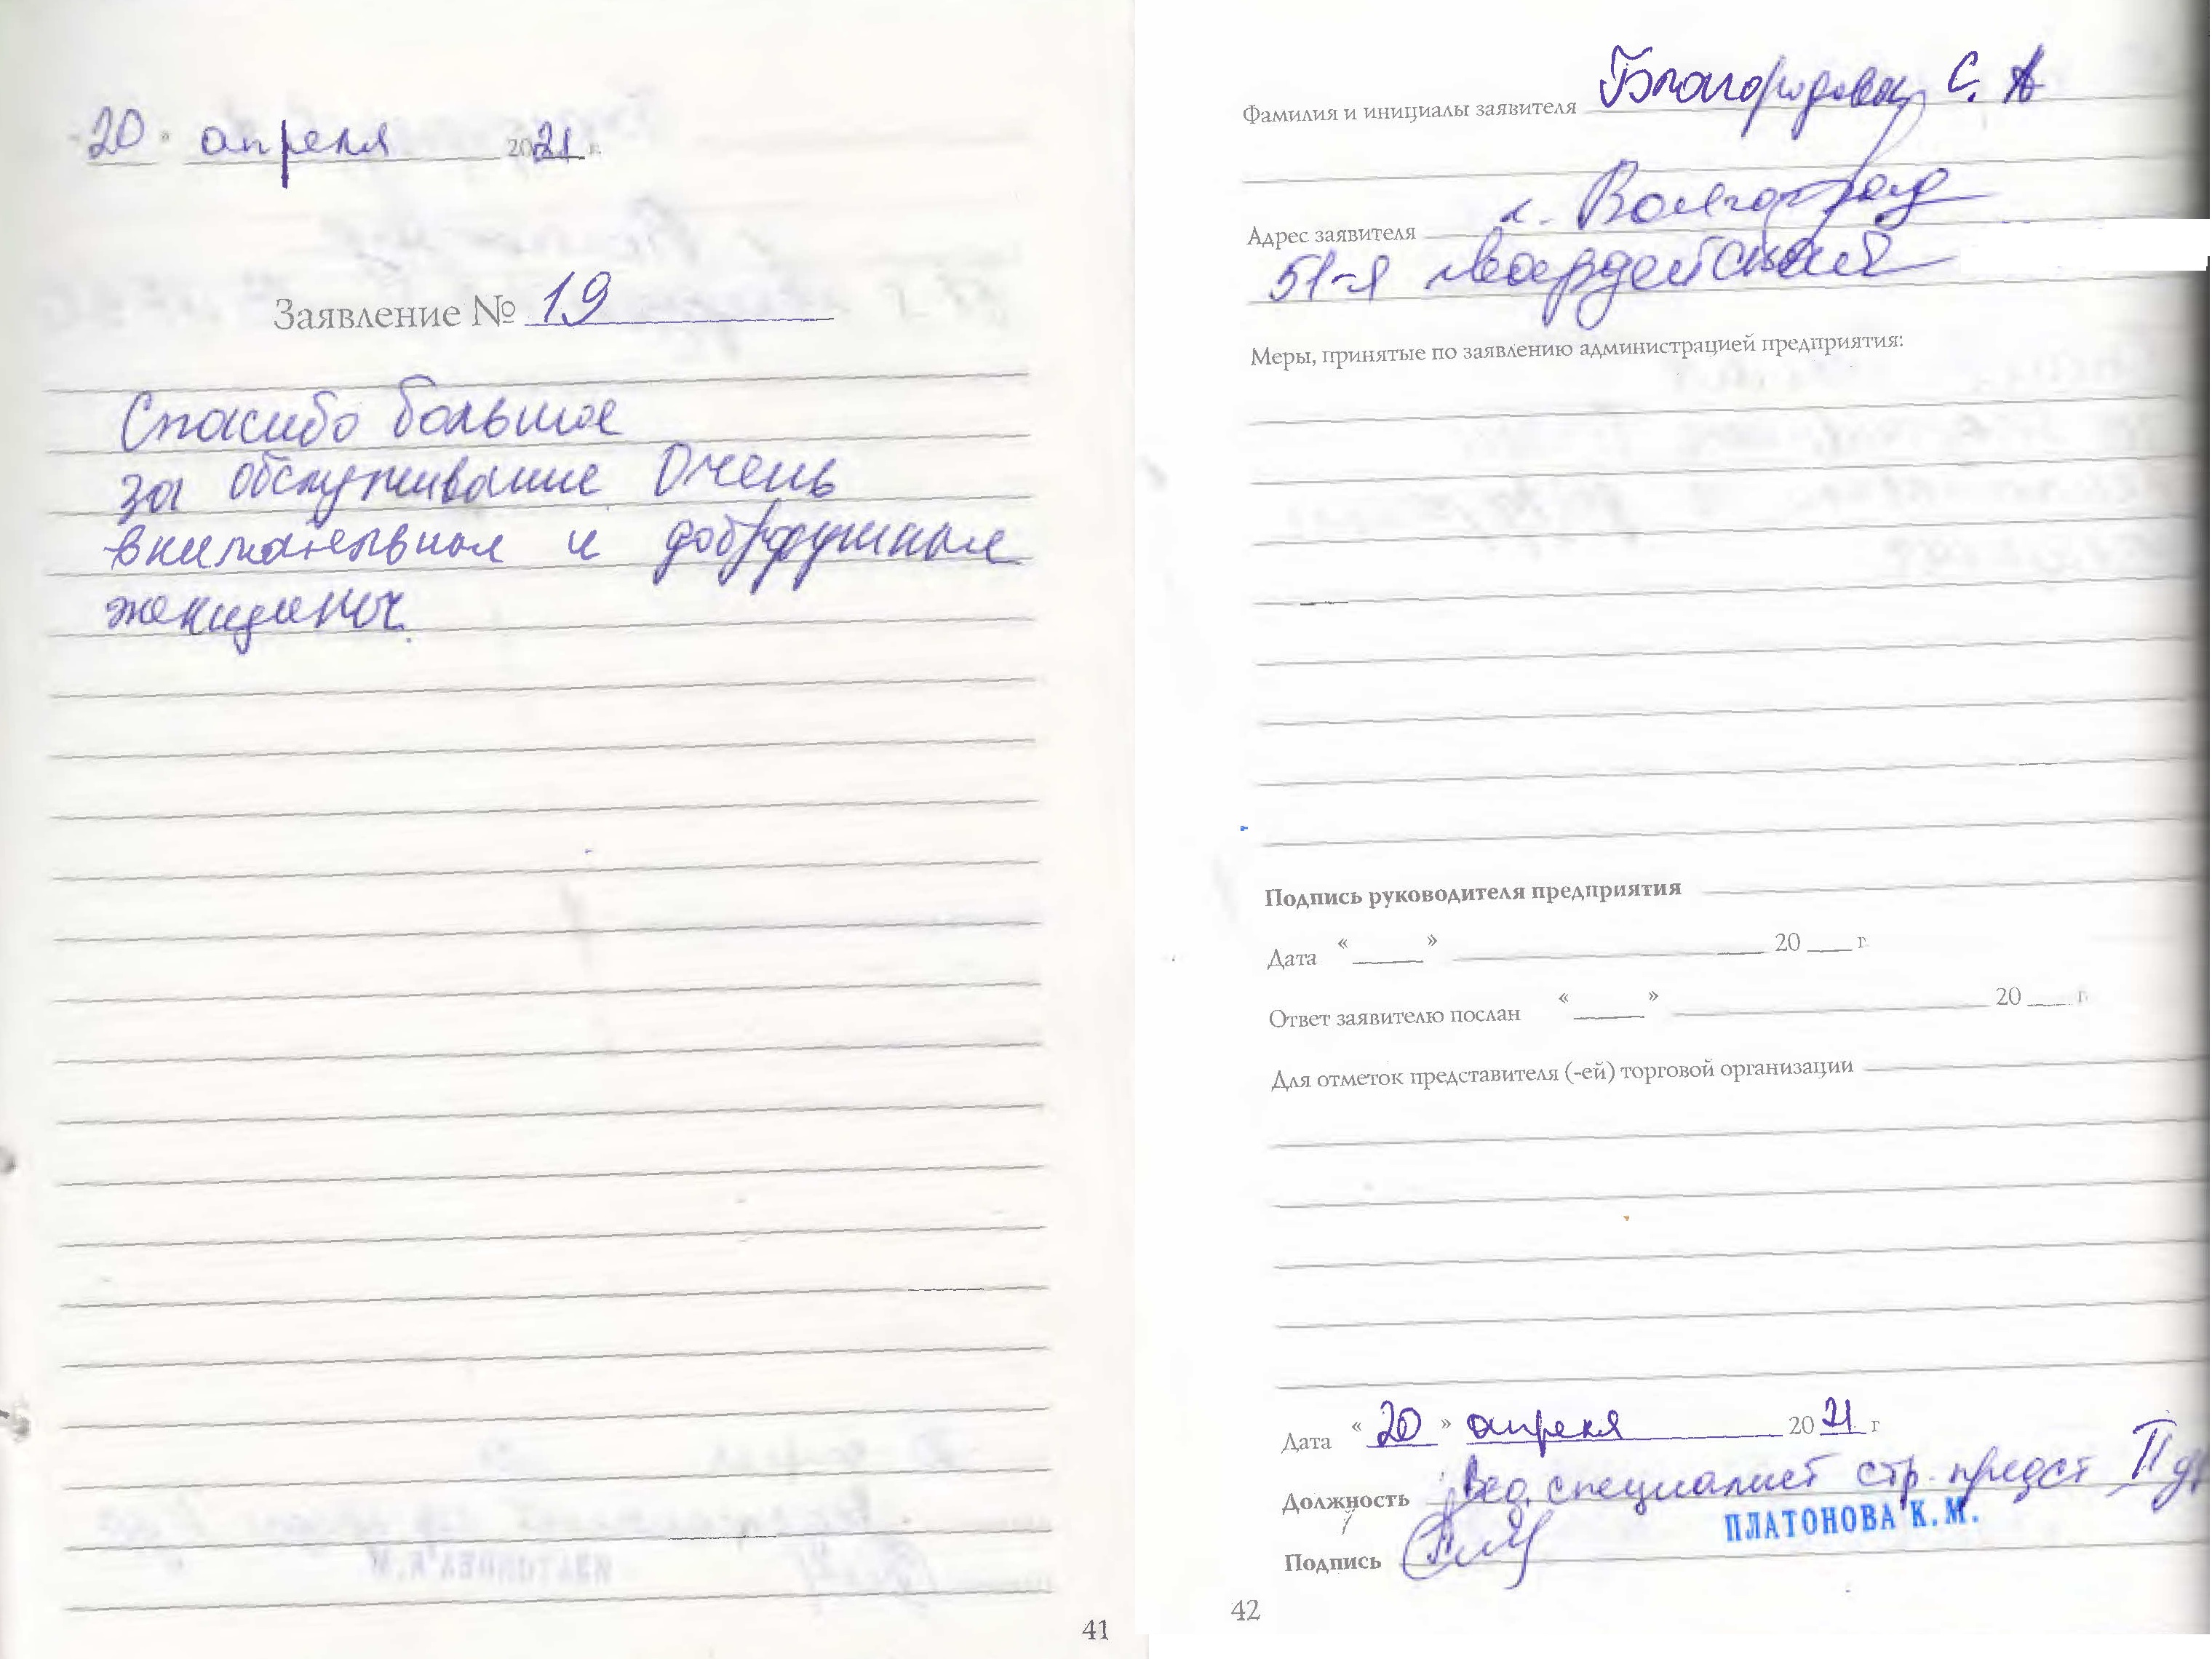 «20» апреля 2021 г.
Заявление № 19
Спасибо большое
за обслуживание Очень
внимательная и добродушная
женщина.
41
Фамилия и инициалы заявителя Благородова С. А
Адрес заявителя г. Волгоград
51-я гвардейская
Меры, принятые по заявлению администрацией предприятия:
Подпись руководителя предприятия
Дата « » 20 г.
Ответ заявителю послан « » 20 г.
Для отметок представителя (-ей) торговой организации
Дата «20» апреля 2021 г
Должность Вед. специалист стр. предст
ПЛАТОНОВА К.М.
Подпись
42